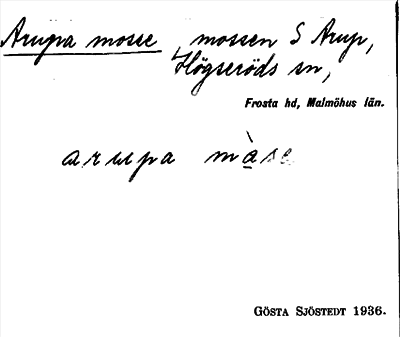 Arupa mosse, mossen S Arup,
Högseröds sn,
Frosta hd, Malmöhus län.
arupa màse
GÖSTA SJÖSTEDT 1936.